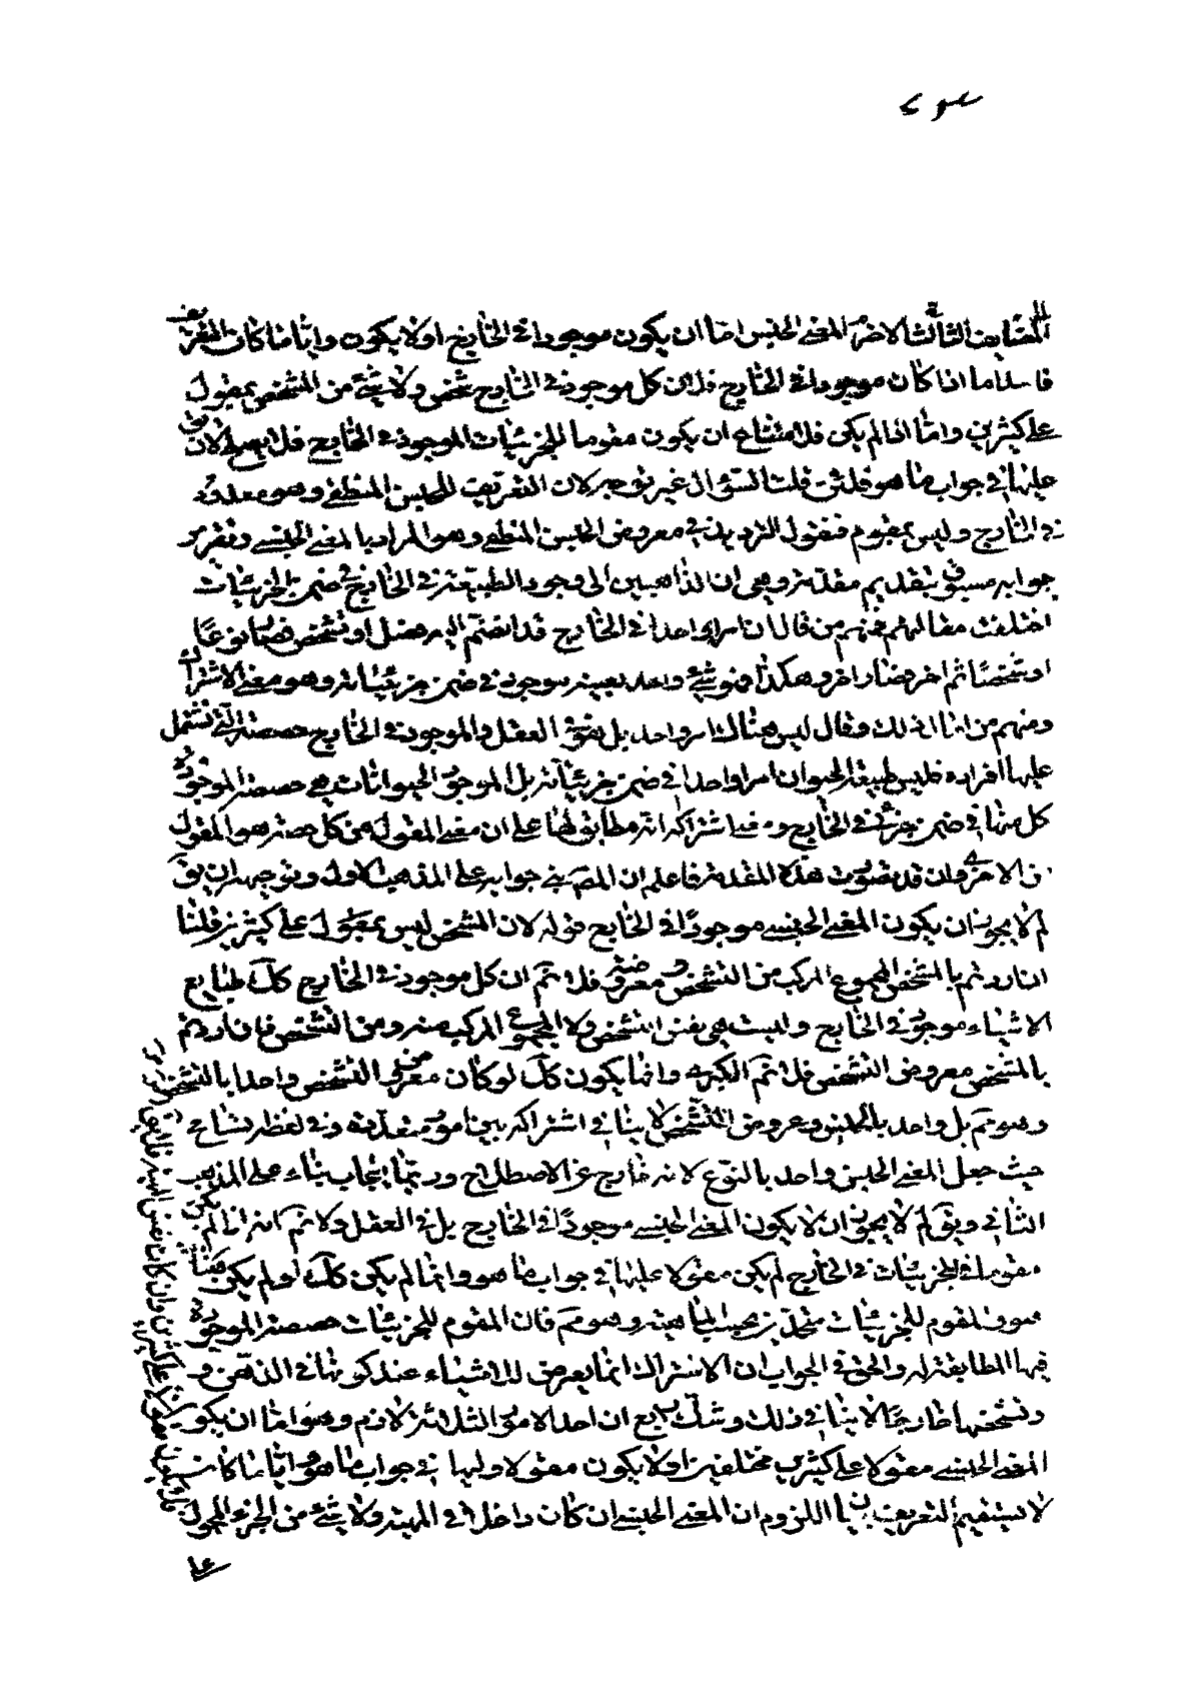 الثالث الاخر المعنى الجنسى اما ان يكون موجودا فى الخارج اولا يكون وايا ما كان التعريف
فاسد اما اذا كان موجودا فى الخارج فلان كل موجود فى الخارج شخص ولا شئ من الشخص بمقول
على كثيرين واما اذا لم يكن فلامتناع ان يكون مقوما للجزئيات الموجودة فى الخارج فلا يصلح لان يق
عليها فى جواب ما هو فلئن قلت السؤال غير متوجه لان التعريف للجنس المنطقى وهو معدوم
فى الخارج وليس بمقوم فنقول الترديد فى معروض الجنس المنطقى وهو المراد بالمعنى الجنسى وتقرير
جوابه مسبوق بتقديم مقدمة وهى ان الذاهبين الى وجود الطبيعة فى الخارج فى ضمن الجزئيات
اختلفت مقالتهم فمنهم من قال ان امرا واحدا فى الخارج قد انضم اليه فصل او تشخص فصار نوعا
او شخصا ثم اخر فصار اخر وهكذا فهو شئ واحد بعينه موجود فى ضمن جزئياته وهو معنى الاشتراك
ومنهم من ابا ذلك وقال ليس هناك امر واحد بل هو فى العقل والموجود فى الخارج حصصه التى تشتمل
عليها افراده فليس طبيعة الحيوان امرا واحدا فى ضمن جزئياته بل الموجود الحيوانات هى حصصه الموجودة
كل منها فى ضمن جزئى فى الخارج ومعنى اشتراكه انه مطابق لها على ان معنى المعقول من كل حصة هو المعقول
من الاخرى وان قد تصورت هذه المقدمة فاعلم ان المص بنى جوابه على المذهب الاول وتوجيهه ان يق
لم لا يجوز ان يكون المعنى الجنسى موجودا فى الخارج قوله لان الشخص ليس بمقول على كثيرين قلنا
ان اردتم بالشخص المجموع المركب من التشخص ومعروضه فلا نم ان كل موجود فى الخارج كك فطبايع
الاشياء موجودة فى الخارج وليست هى نفس التشخص ولا المجموع المركب منه ومن التشخص فان اردتم
بالشخص معروض التشخص فلا نم الكبرى وانما يكون كك لو كان معروض التشخص واحدا بالشخص
وهو مم بل واحد بالجنس ومعروض التشخص لا ينافى اشتراكه بين امور متعددة وفى لفظه تسامح
حيث جعل المعنى الجنسى واحدا بالنوع لانه خارج عن الاصطلاح وربما يجاب بناء على المذهب
الثانى ويق لم لا يجوز ان لا يكون المعنى الجنسى موجودا فى الخارج بل فى العقل ولا نم انه اذا لم يكن
مقوما للجزئيات فى الخارج لم يكن مقولا عليها فى جواب ما هو وانما لم يكن كك لو لم يكن
مقوما للجزئيات متحدة بحسب الماهية وهو مم فان المقوم للجزئيات حصصه الموجودة
فيها المطابقة له والحق فى الجواب ان الاشتراك انما يعرض للاشياء عند كونها فى الذهن و
وتشخصها خارجا لا ينافى ذلك وشك رابع ان احد الامور الثلاثة لازم وهو اما ان يكون
المعنى الجنسى مقولا على كثيرين مختلفين اولا يكون مقولا عليها فى جواب ما هو وايا ما كان
لا يستقيم التعريف بيان اللزوم ان المعنى الجنسى ان كان داخلا فى المهية ولا شئ من الجزء المحمول